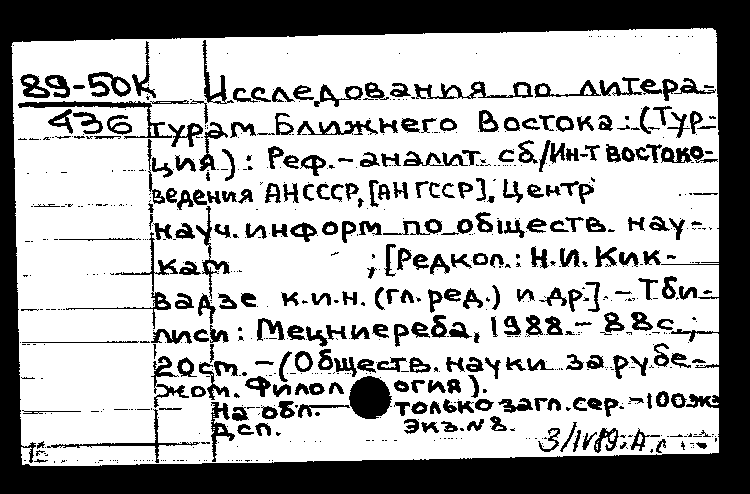 89-50к Исследования по литера-
436 турам Ближнего Востока: (Тур-
ция): Реф.-аналит. сб./Ин-т востоко-
ведения АНСССР, [АН ГССР], Центр
науч. информ по обществ. нау-
кам ; [Редкол.: Н.И. Кик-
вадзе к.и.н. (гл. ред.) и др.]. - Тби-
лиси: Мецниереба, 1988. - 88с.;
20см. - (Обществ. науки за рубе-
жом. Филология).
На обл. только загл. сер. - 100экз
Дсп. Экз. № 8.
3/IV89.